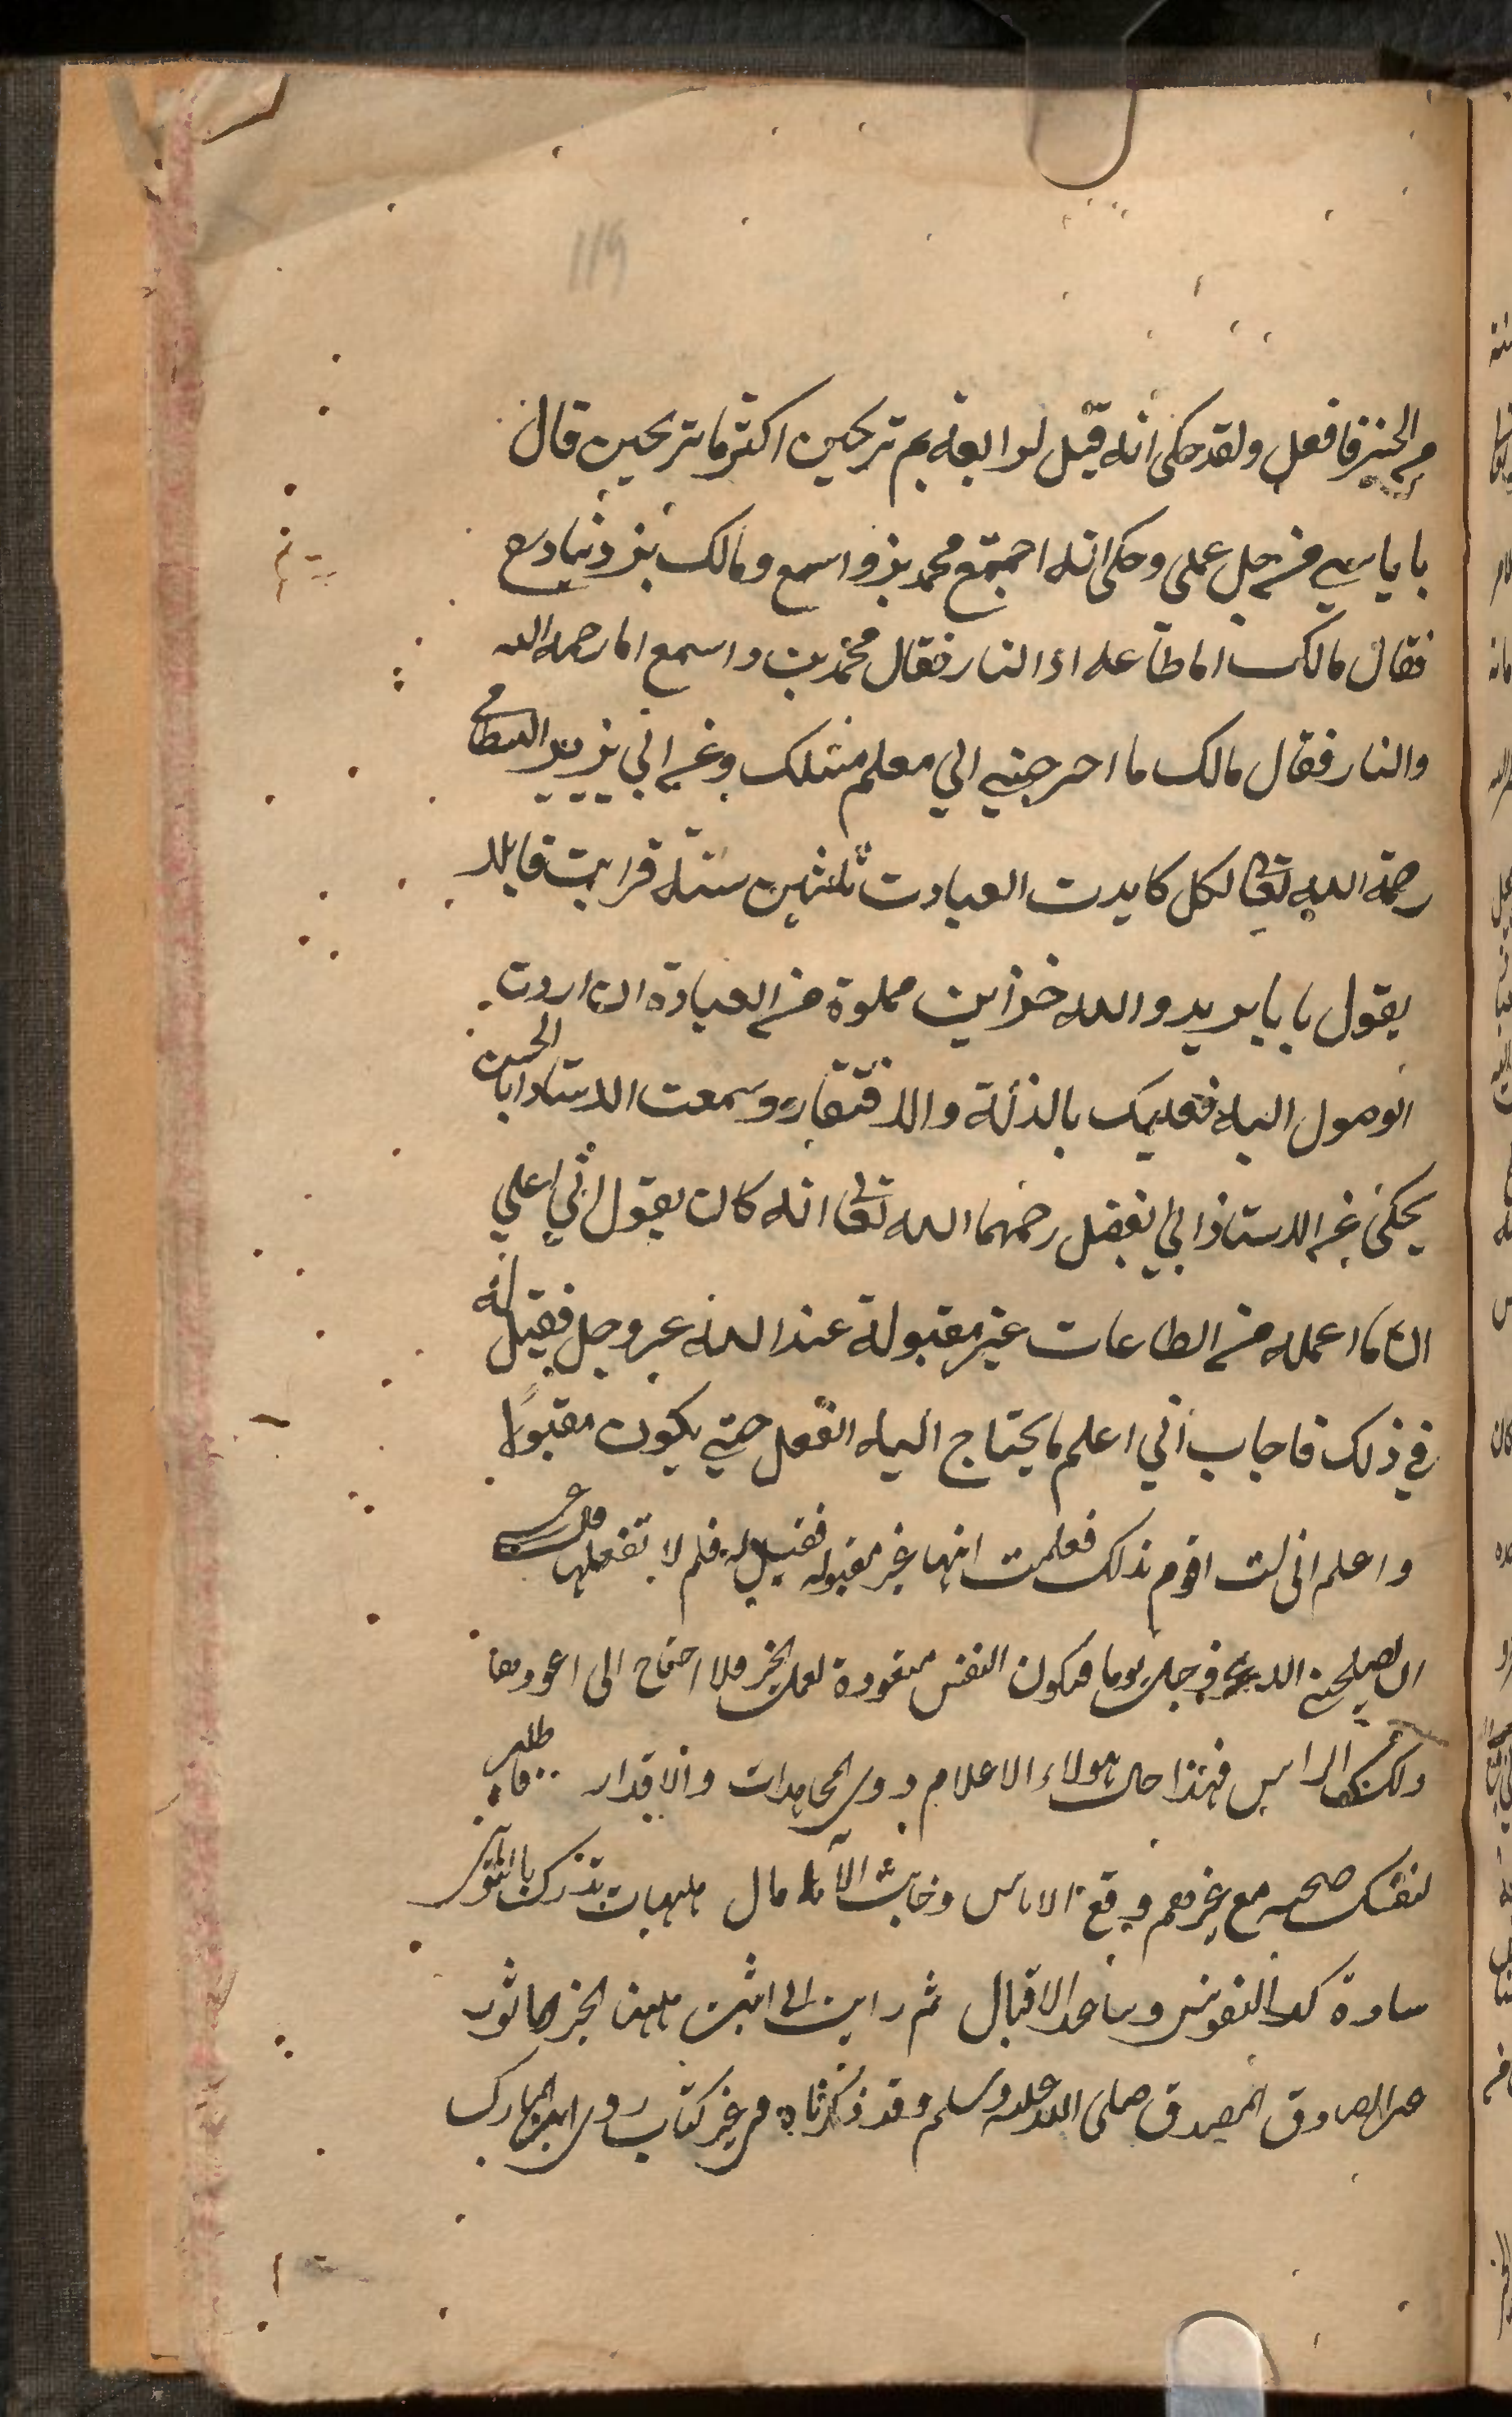 119
من الخير فافعل ولقد حكى انه قيل لرابعة بم ترتجين اكثر ما ترتجين قال
باياسي من جل عملي وحكى انه اجتمع محمد بن واسع ومالك بن دينار
فقال مالك اما طاعة الله او النار فقال محمد بن واسع اما رحمة الله
والنار فقال مالك ما احوجني الي معلم مثلك وعن ابي يزيد البسطامي
رحمة الله تعالى قال كابدت العبادت ثلثين سنة فرايت قايلا
يقول يا با يزيد والله خزاين مملوة من العبادة ان اردت
الوصول اليه فعليك بالذلة والافتقار وسمعت الاستاد ابا الحسن
يحكى عن الاستاذ ابي الفضل رحمهما الله تعالى انه كان يقول اني اعلم
ان ما اعمله من الطاعات غير مقبولة عند الله عز وجل فقيل له
في ذلك فاجاب اني اعلم ما يحتاج اليه الفعل حتي يكون مقبولا
واعلم انى لست اقوم بذلك فعلمت انها غير مقبوله فقيل له فلم لا تفعلها قال عسى
ان يصلحني الله عز وجل يوما فتكون النفس متعودة لعمل الخير فلا احتاج الى اعودها
ذلك من الراس فهذا حال هولاء الاعلام ذوي المجاهدات والاقدار فاطلب
لنفسك صحبه مع غيرهم وقع الاياس وخابت الآمال هيهات تدرك بالتواني
سادة كدوا النفوس وساعد الاقبال ثم رايت ان اثبت ههنا الخبر الماثور
عن الصادق المصدق صلى الله عليه وسلم وقد ذكرناه في غير كتاب روى ابن المبارك